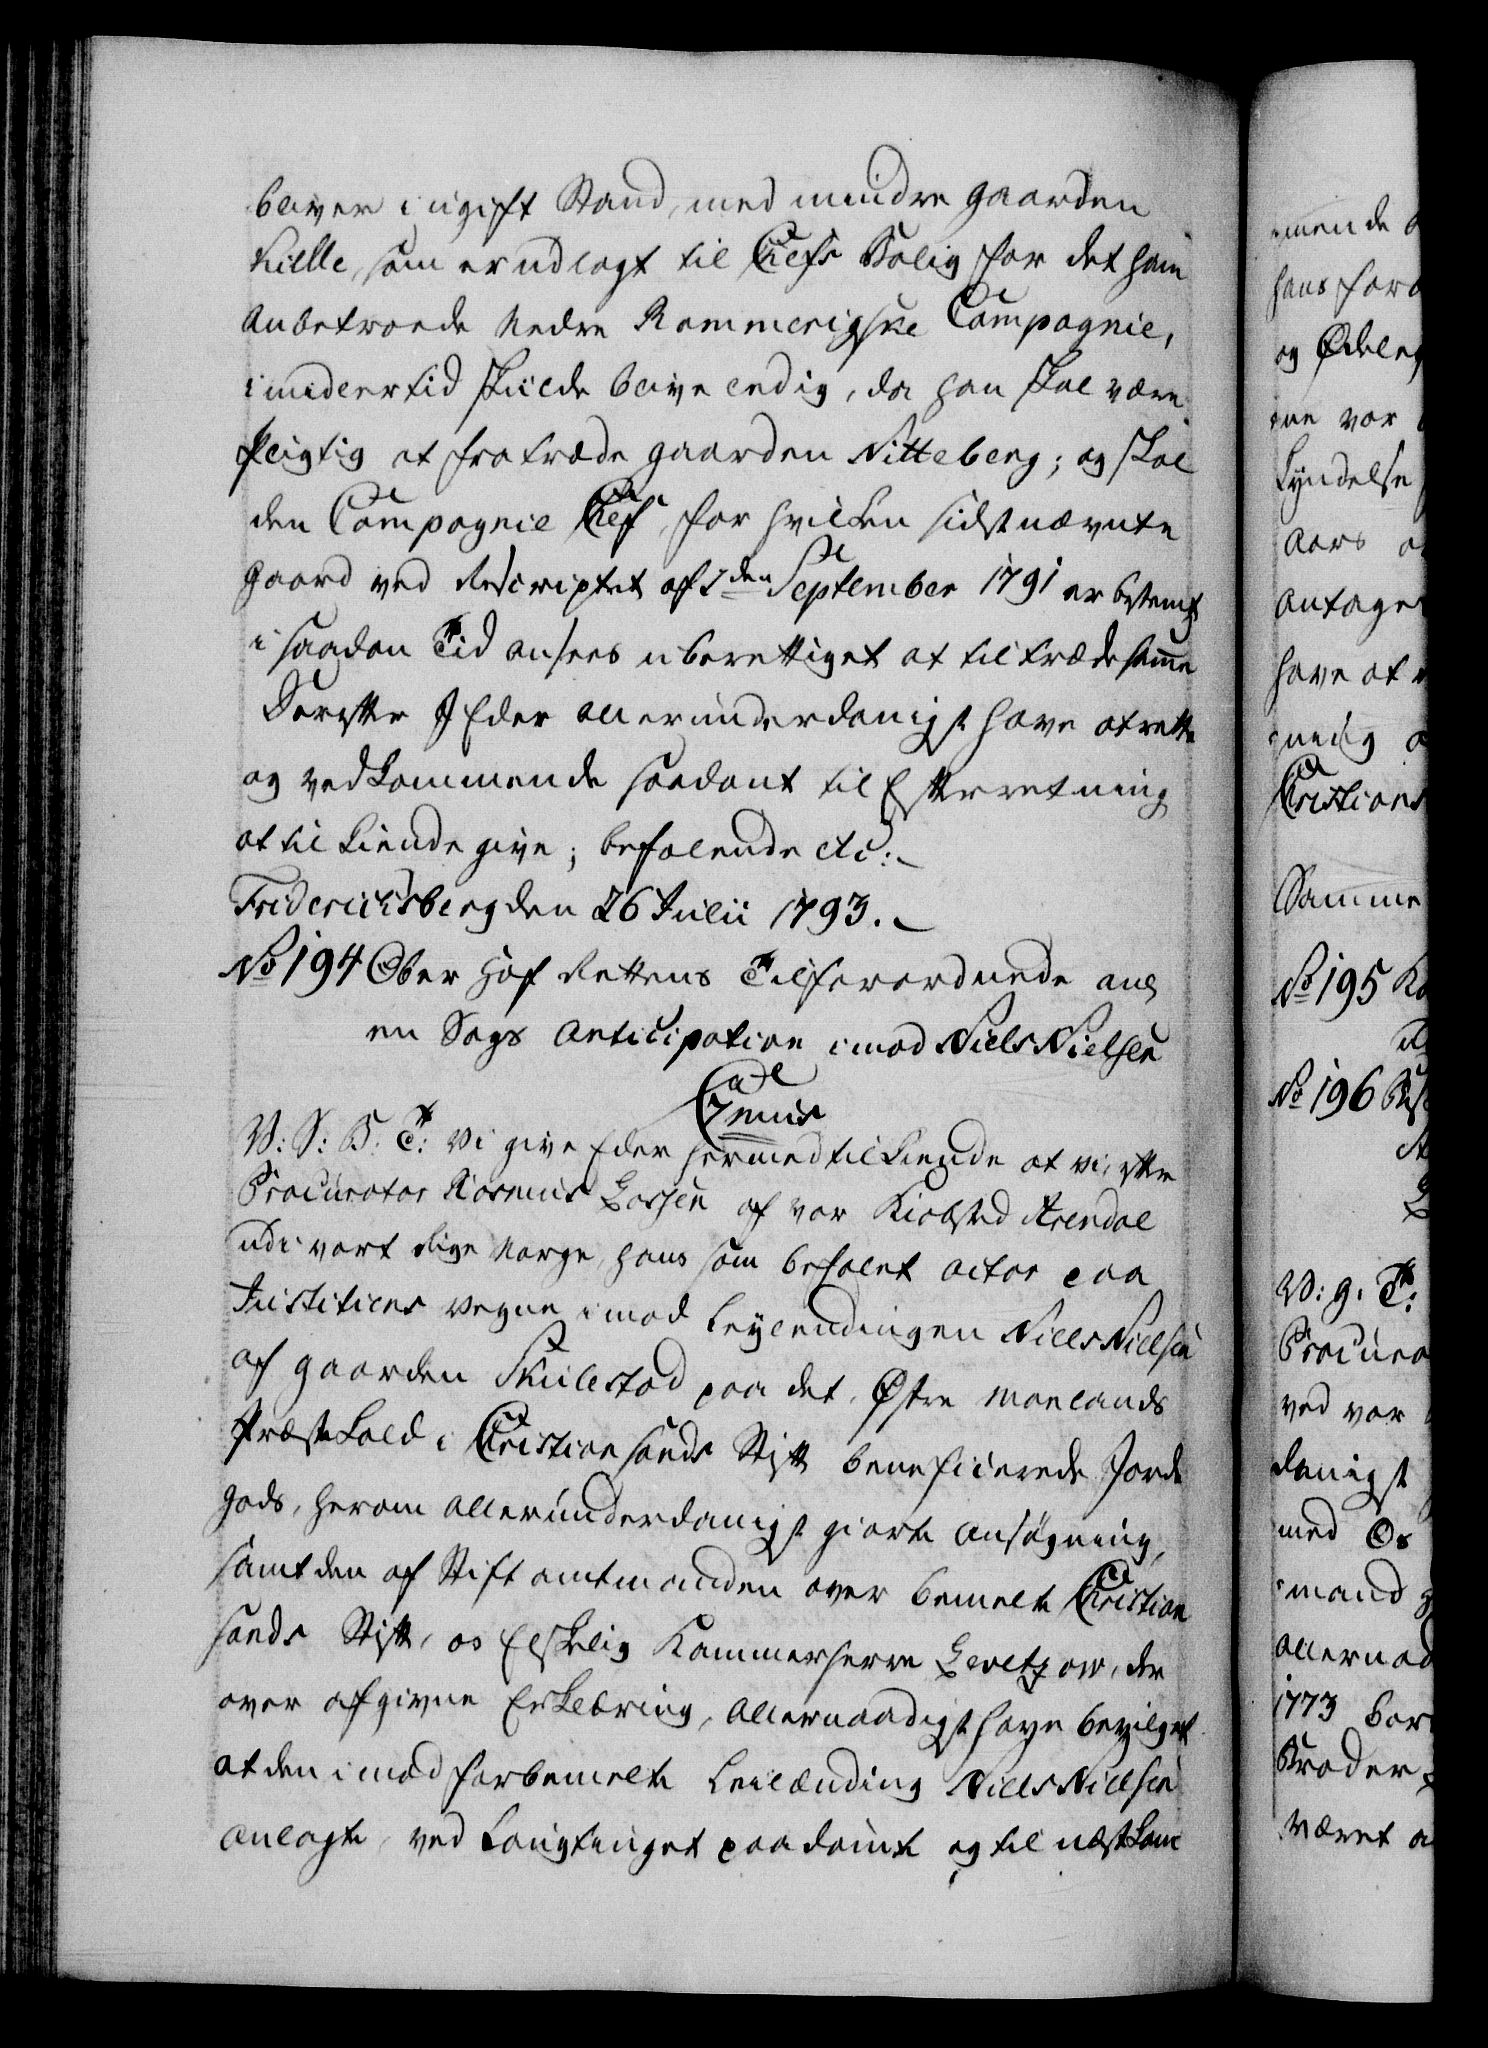 bliver i ugift Stand, med mindre Gaarden
Kielle, som er udlagt til Chefs Bolig for det ham
anbetroede Nedre Rommerigske Compagnie,
imidlertid skulde blive ledig, da han skal være
pligtig at fratræde Gaarden Nitteberg; og skal
den Compagnie Chef, for hvilken sidstnævnte
Gaard ved Rescriptet af 7den September 1791 er bestemt
i saadan Tid ansees uberettiget at tiltræde samme
Derefter I Eder allerunderdanigst have at rette
og vedkommende saadant til Efterretning
at tilkiende give; befalende etc:
Friderichsberg den 26 Julii 1793.
No 194 Ober Hof Rettens Tilforordnede ang
en Sags Anticipation imod Niels Nielsen
Cane
Gemis
V: S: B: T: Vi give Eder hermed tilkiende at vi, efter
Procurator Rasmus Lassen af vor Kiøbsted Arendal
udi vort Rige Norge, hans som befalet Actor paa
Justitiens Vegne imod Leylendingen Niels Nielsen
af Gaarden Skulestad paa det Østre Molands
Præstekald i Christiansands Stift beneficerede Jorde
gods, herom allerunderdanigst giorte Ansøgning,
samt den af Stiftamtmanden over bemelte Christian
sands Stift, os Elskelig Kammerherre Levetzow, der
over afgivne Erklæring, allernaadigst have bevilget
at den imod forbemelte Leilænding Niels Nielsen
anlagte, ved Langtinget paadømte og til næstkom
mende
hans for
og Ødeleg
ne var
kyndelse
Aars
antage
have at
nedig
Christians
Samme
No 195
No 196
V: G: T:
Procura
ved vor
danigst
med Os
mand
allernaad
1773
Broder
været